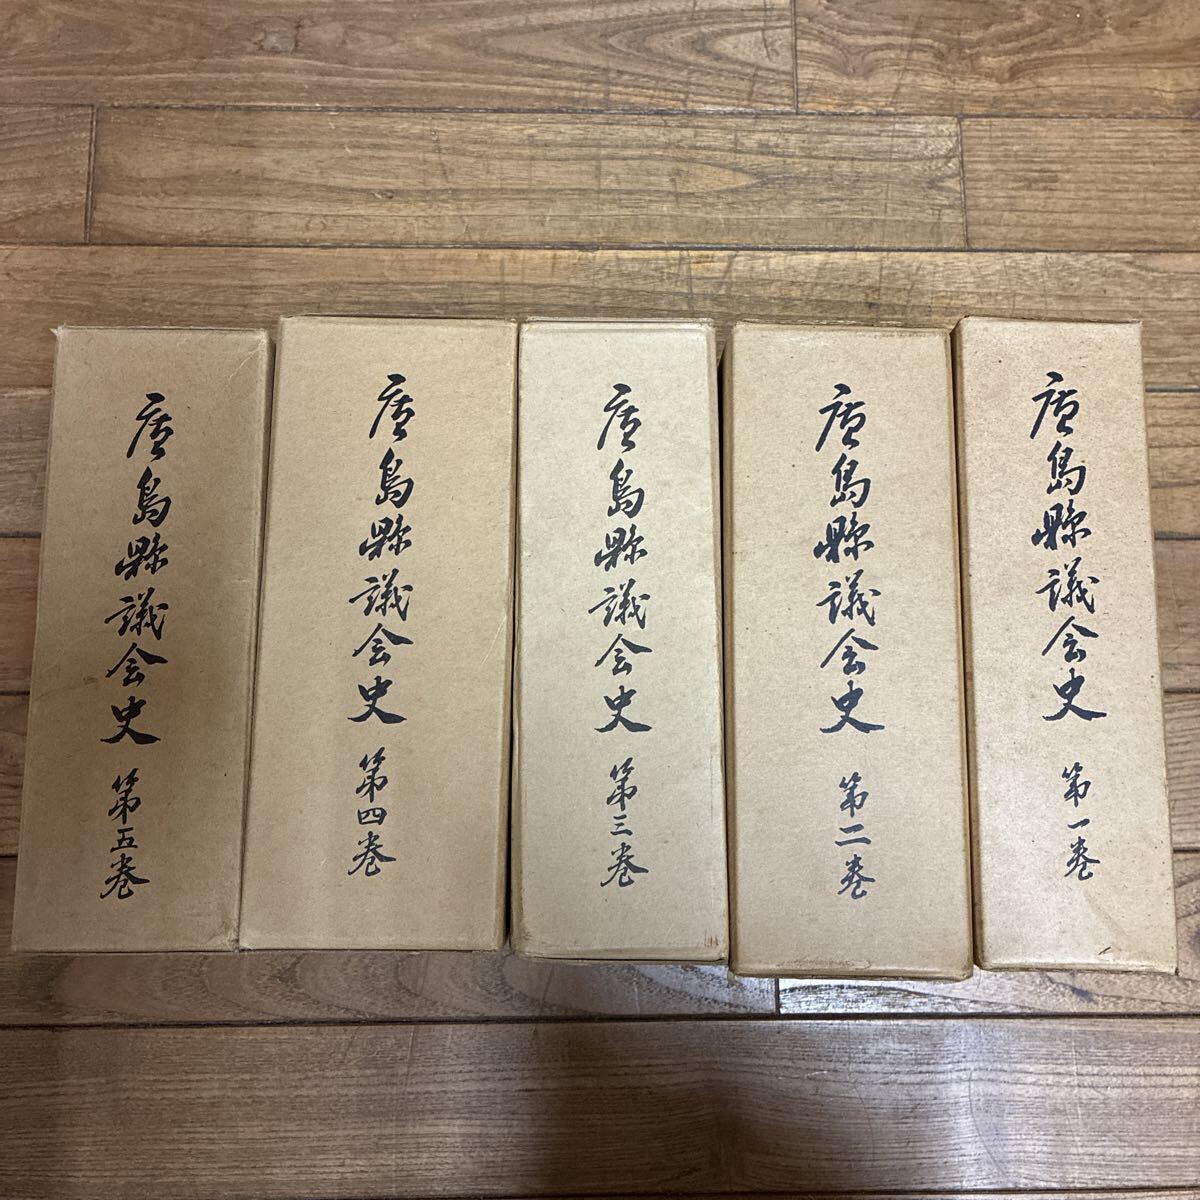 廣島縣議会史 第一巻
廣島縣議会史 第二巻
廣島縣議会史 第三巻
廣島縣議会史 第四巻
廣島縣議会史 第五巻